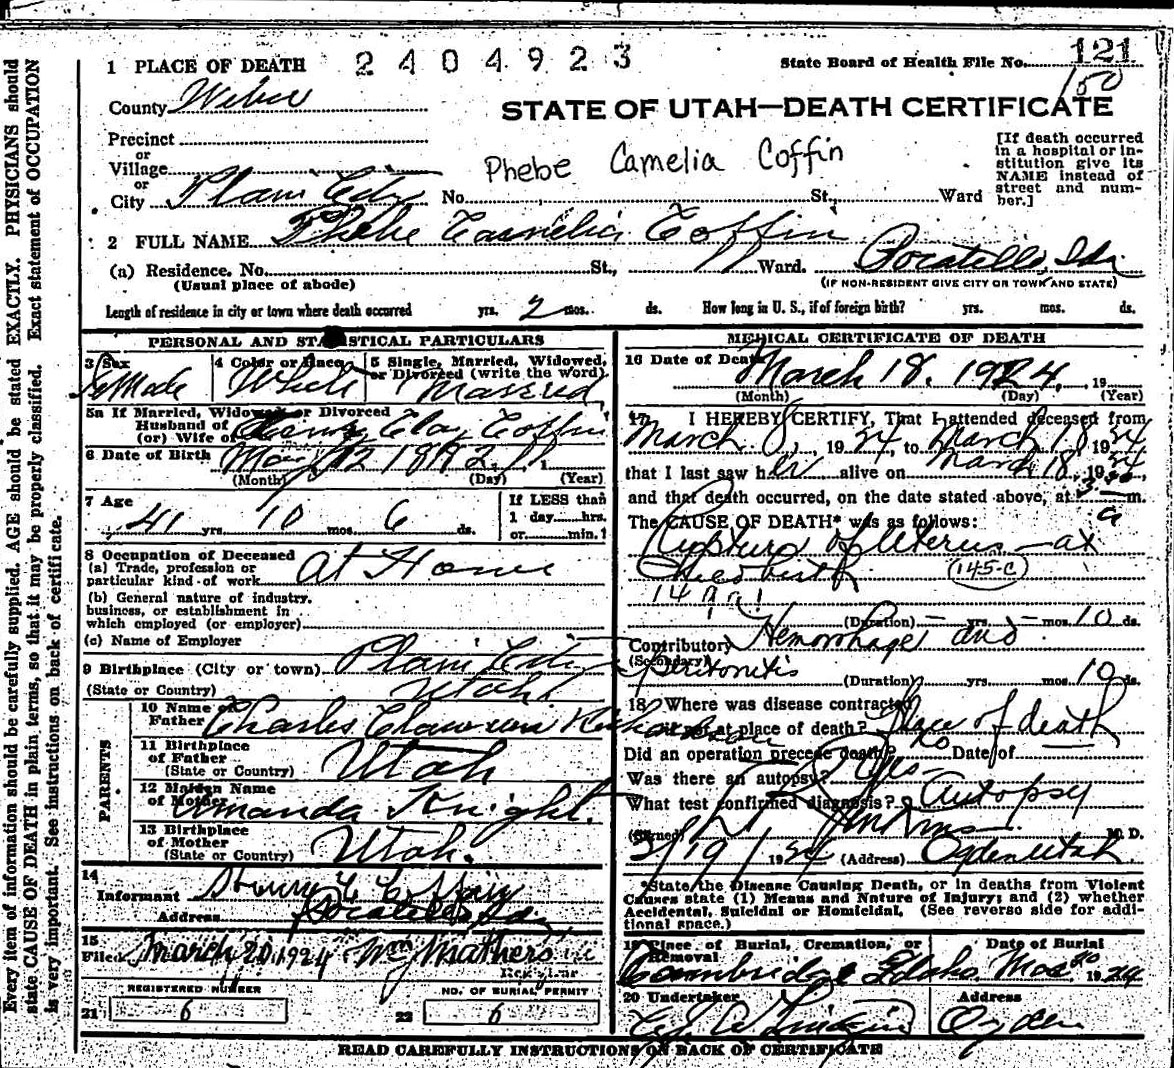 Every item of information should be carefully supplied. AGE should be stated EXACTLY. PHYSICIANS should
state CAUSE OF DEATH in plain terms, so that it may be properly classified. Exact statement of OCCUPATION
is very important. See instructions on back of certificate.
1 PLACE OF DEATH 2404923 State Board of Health File No. 121
150
County Weber
STATE OF UTAH—DEATH CERTIFICATE
Precinct
or
Village
or
City Plain City No. St., Ward
Phebe Camelia Coffin
[If death occurred
in a hospital or in-
stitution give its
NAME instead of
street and num-
ber.]
2 FULL NAME Phebe Camelia Coffin
(a) Residence. No. St., Ward. Pocatello, Ida
(Usual place of abode) (IF NON-RESIDENT GIVE CITY OR TOWN AND STATE)
Length of residence in city or town where death occurred yrs. 2 mos. ds. How long in U. S., if of foreign birth? yrs. mos. ds.
PERSONAL AND STATISTICAL PARTICULARS
3 Sex Female
4 Color or Race White
5 Single, Married, Widowed, or Divorced (write the word) Married
5a If Married, Widowed or Divorced
Husband of
(or) Wife of Henry Clay Coffin
6 Date of Birth May 12 1882
(Month) (Day) (Year)
7 Age 41 yrs. 10 mos. 6 ds.
If LESS than
1 day hrs.
or min.
8 Occupation of Deceased
(a) Trade, profession or
particular kind of work At Home
(b) General nature of industry,
business, or establishment in
which employed (or employer)
(c) Name of Employer
9 Birthplace (City or town) Plain City
(State or Country) Utah
PARENTS
10 Name of
Father Charles Richardson
11 Birthplace
of Father
(State or Country) Utah
12 Maiden Name
of Mother Amanda Knight.
13 Birthplace
of Mother
(State or Country) Utah.
14
Informant Henry C Coffin
Address Pocatello, Ida
15
Filed March 20, 1924
Registrar
REGISTERED NUMBER NO. OF BURIAL PERMIT
21 6 22 6
MEDICAL CERTIFICATE OF DEATH
16 Date of Death March 18. 1924. 19
(Month) (Day) (Year)
17 I HEREBY CERTIFY, That I attended deceased from
March 8, 1924, to March 18 1924
that I last saw her alive on March 18, 1924
and that death occurred, on the date stated above, at 3 a m.
The CAUSE OF DEATH* was as follows:
Rupture of Uterus — at
Childbirth 145-c
(Duration) — yrs. — mos. 10 ds.
Contributory Hemorrhage and
(Secondary) Peritonitis
(Duration) yrs. mos. 10 ds.
18 Where was disease contracted
if not at place of death? Place of death
Did an operation precede death? No Date of
Was there an autopsy? Yes
What test confirmed diagnosis? Autopsy
(Signed) M. D.
3/19/1924 (Address) Ogden Utah.
*State the Disease Causing Death, or in deaths from Violent
Causes state (1) Means and Nature of Injury; and (2) whether
Accidental, Suicidal or Homicidal. (See reverse side for addi-
tional space.)
19 Place of Burial, Cremation, or Removal Date of Burial
Cambridge Idaho Mar 20 1924
20 Undertaker Address
Ogden
READ CAREFULLY INSTRUCTIONS ON BACK OF CERTIFICATE